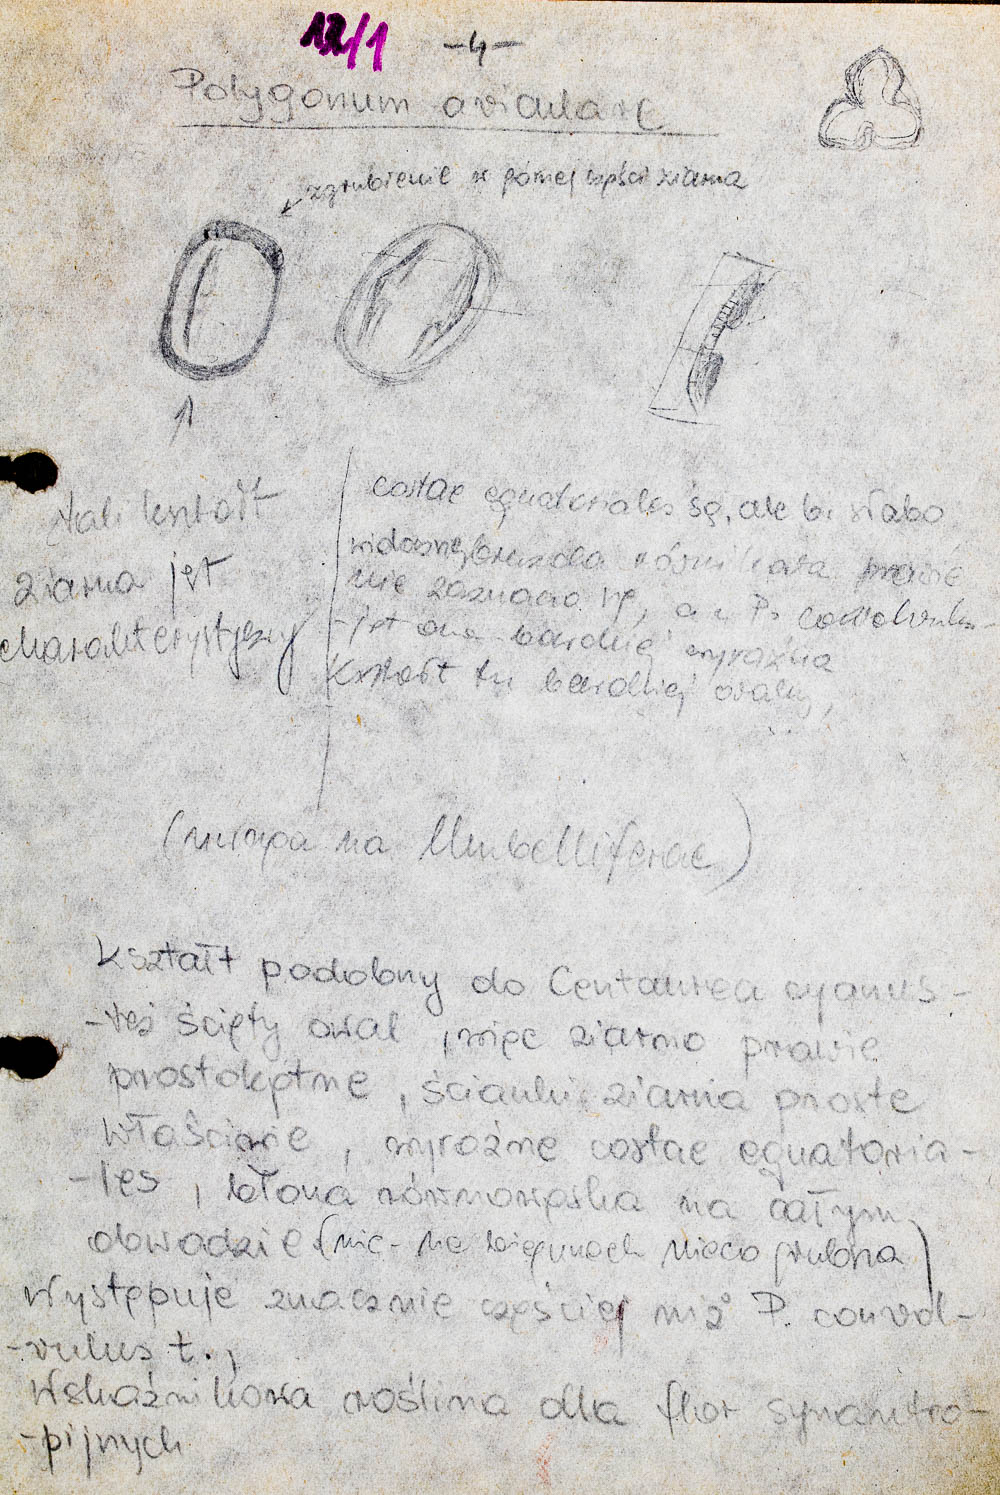 12/1 -4-
Polygonum aviculare
zgrubienie w górnej części ziarna
taki kształt
ziarna jest
charakterystyczny
costae equatoriales są, ale b. słabo
widoczne, bruzda równikowa prawie
nie zaznacza się, a u P. convolvulus-
- jest ona bardziej wyraźna
Kształt tu bardziej owalny,
(na Umbelliferae)
Kształt podobny do Centaurea cyanus -
- też ścięty owal, więc ziarno prawie
prostokątne, ścianki ziarna proste
właściwie, wyraźne costae equatoria-
-les, błona równowąska na całym
obwodzie (nie - na biegunach nieco grubsza)
Występuje znacznie częściej niż P. convol-
-vulus t.,
Wskaźnikowa roślina dla flor synantro-
-pijnych